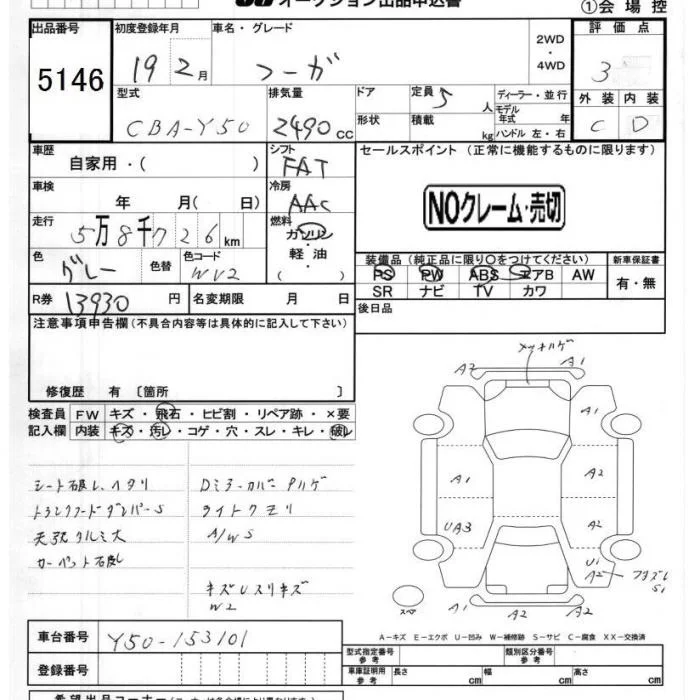 オークション出品申込書
①会場控
出品番号
5146
初度登録年月
19 2月
車名・グレード
フーガ
2WD
・
4WD
評価点
3
外装 内装
C D
型式
CBA-Y50
排気量
2490cc
ドア
形状
定員 5人
積載 kg
ディーラー・並行
モデル年式 年
ハンドル 左・右
車歴
自家用・( )
シフト
FAT
セールスポイント (正常に機能するものに限ります)
NOクレーム・売切
車検
年 月( 日)
冷房
AAC
走行
5万8千726km
燃料
ガソリン
・
軽油
( )
色
グレー
色替
色コード
WV2
装備品(純正品に限り○をつけてください)
PS PW ABS エアB AW
SR ナビ TV カワ
新車保証書
有・無
R券 13930円
名変期限 月 日
後日品
注意事項申告欄(不具合内容等は具体的に記入して下さい)
修復歴 有 〔箇所 〕
検査員
記入欄
FW キズ・飛石・ヒビ割・リペア跡・×要
内装 キズ・汚レ・コゲ・穴・スレ・キレ・破レ
シート破レ、ヘタリ
トランクフードダンパーS
天張タルミ大
カーペット破レ
Dミラーカバー Pハゲ
ライトクモリ
A/W S
キズUスリキズ
W2
メッキハゲ
A2 A1
A1
A1 A2
UA3 A2
U1
A2
S1
スペ
A1 A2
A-キズ E-エクボ U-凹み W-補修跡 S-サビ C-腐食 XX-交換済
車台番号
Y50-153101
登録番号
型式指定番号
参考
類別区分番号
参考
車庫証明用
参考
長さ cm
幅 cm
高さ cm
希望出品コーナー